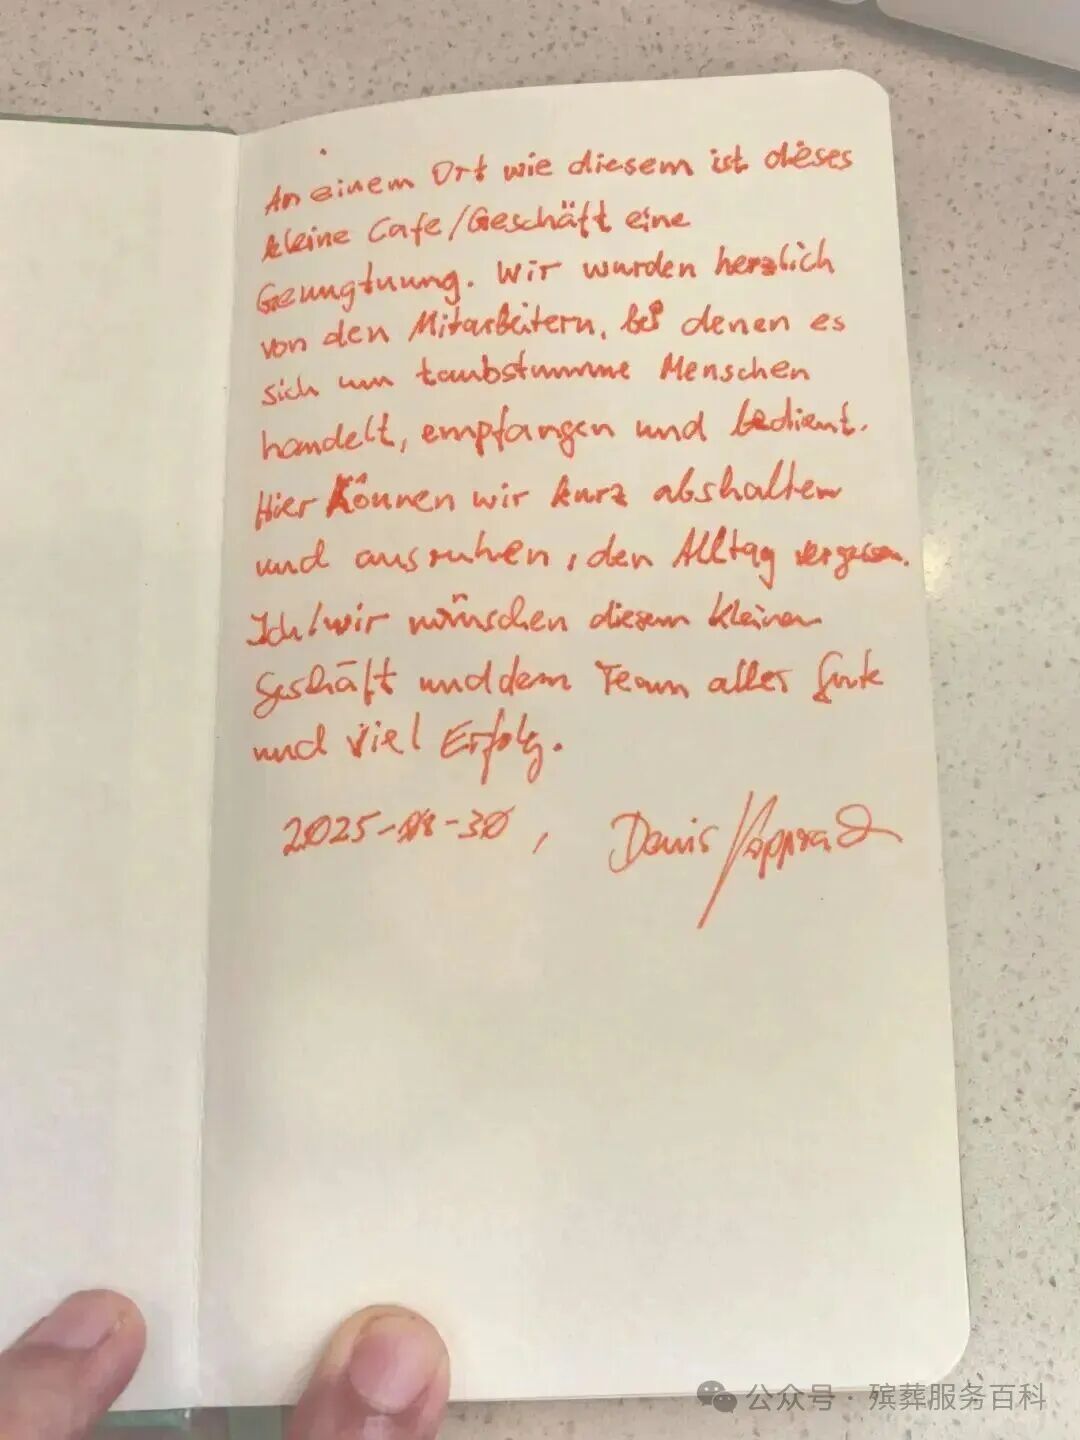 An einem Ort wie diesem ist dieses
kleine Cafe/Geschäft eine
Genugtuung. Wir wurden herzlich
von den Mitarbeitern, bei denen es
sich um taubstumme Menschen
handelt, empfangen und bedient.
Hier können wir kurz abshalten
und ausruhen, den Alltag vergessen.
Ich/wir wünschen diesem kleinen
Geschäft und dem Team alles Gute
und viel Erfolg.
2025-08-30, Denis
公众号 · 殡葬服务百科